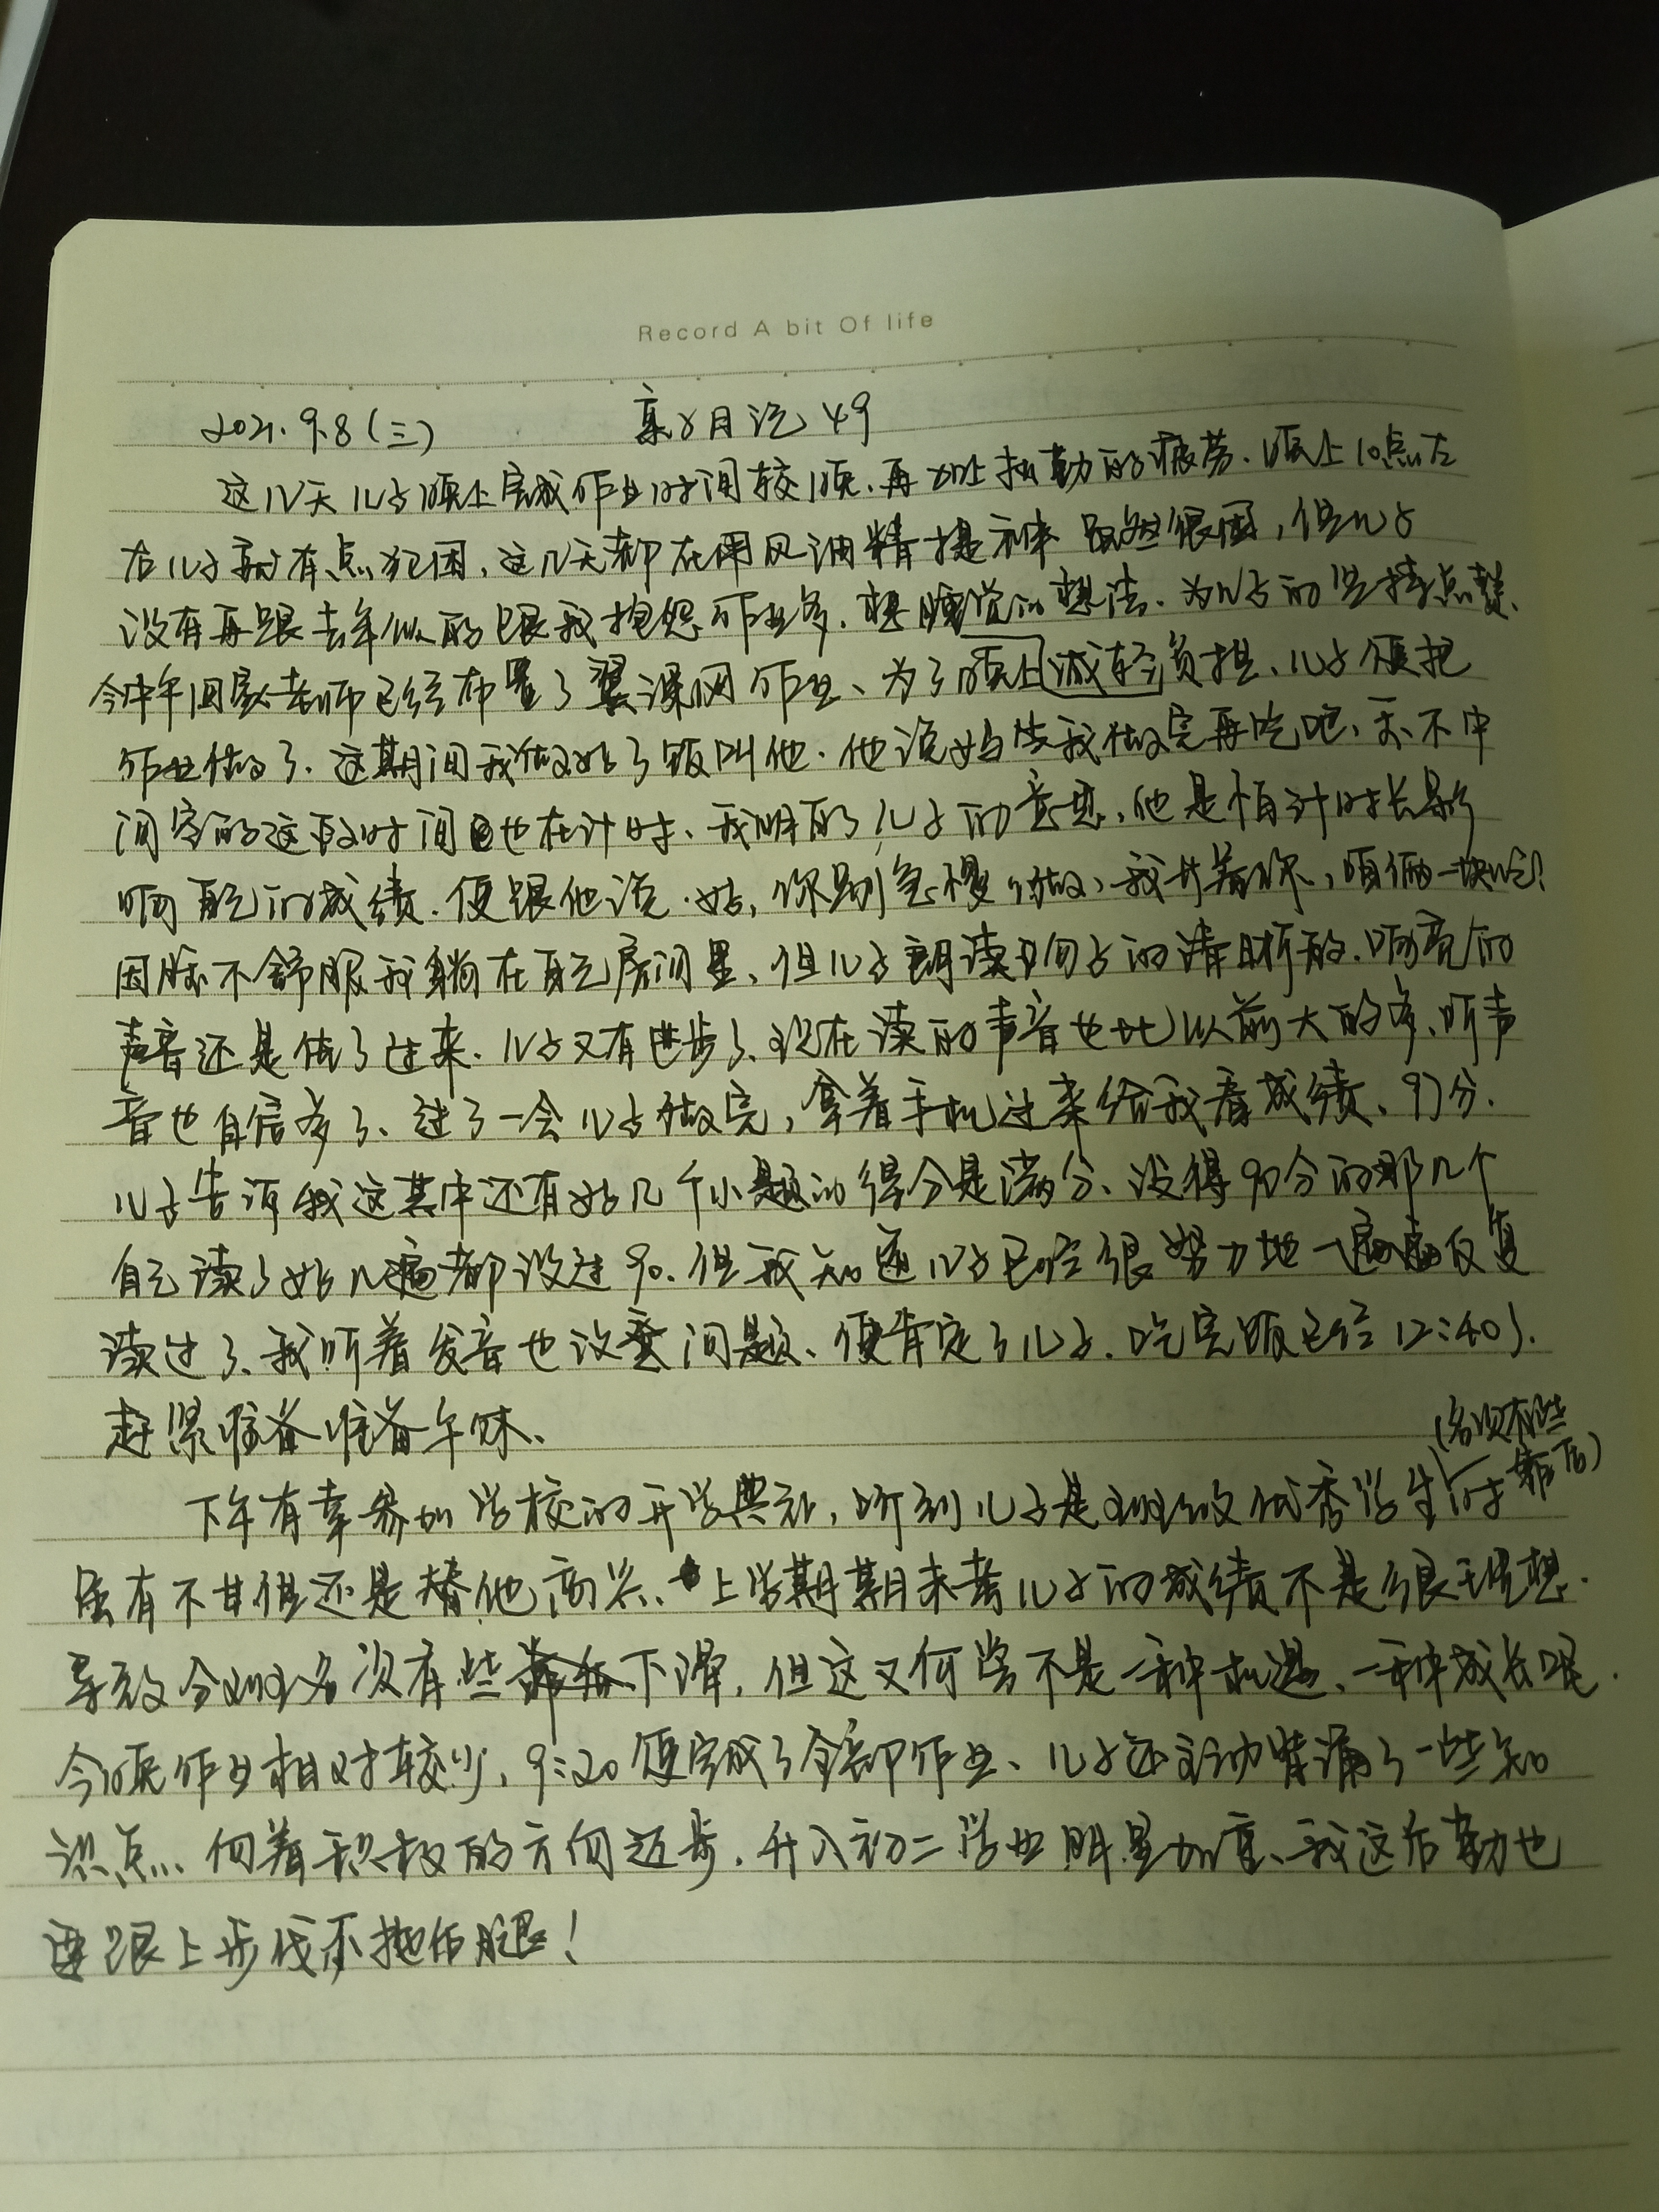 Record A bit Of life
2021.9.8(三) 亲子月记 49
这几天儿子晚上完成作业时间较晚、再加上出勤的疲劳.晚上10点左
右儿子就有点犯困,这几天都在用风油精提神 虽然很困,但儿子
没有再跟去年似的跟我抱怨作业多.想睡觉的想法.为儿子的坚持点赞、
今中午回家老师已经布置了翼课网作业、为了晚上减轻负担、儿子便把
作业做了.这期间我做好了饭叫他.他说妈等我做完再吃吧、要不中
间空的这段时间也在计时、我明白了儿子的意思,他是怕计时长影
响自己的成绩.便跟他说.好,你别急慢慢做、我等着你,咱俩一块吃!
因腰不舒服我躺在自己房间里、但儿子朗读句子的清晰的.响亮的
声音还是传了过来.儿子又有进步了、现在读的声音也比以前大的多、听声
音也自信多了、过了一会儿子做完,拿着手机过来给我看成绩、97分.
儿子告诉我这其中还有好几个小题的得分是满分、没得90分的那几个
自己读了好几遍都没过90.但我知道儿子已经很努力地一遍遍反复
读过了、我听着发音也没啥问题、便肯定了儿子.吃完饭已经12:40了.
赶紧准备准备午休、
(名次有些
靠后)
下午有幸参加学校的开学典礼,听到儿子是班级优秀学生时
虽有不甘但还是替他高兴、上学期期末考儿子的成绩不是很理想.
导致分班名次有些下滑,但这又何尝不是一种机遇、一种成长呢.
今晚作业相对较少,9:20便完成了全部作业、儿子还主动背诵了一些知
识点、向着积极的方向迈步.升入初二学业明显加重、我这后勤也
要跟上步伐不拖后腿!